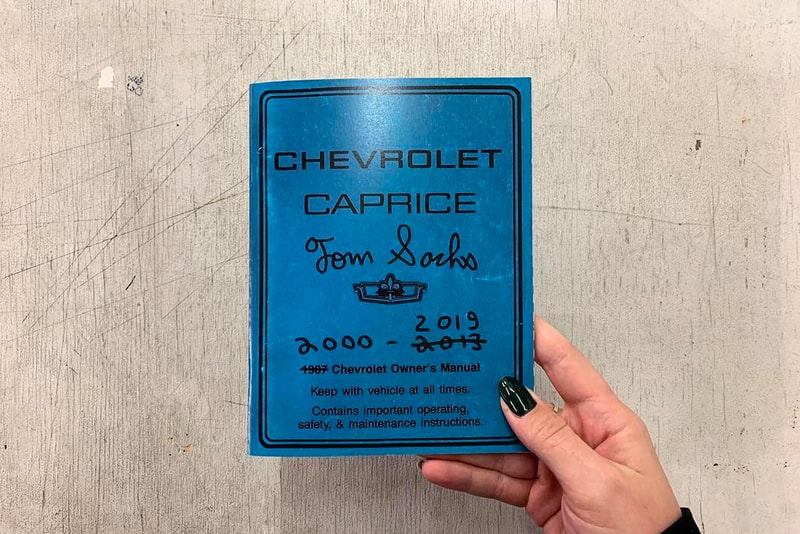 CHEVROLET
CAPRICE
Tom Sachs
2019
2000 - 2013
1987 Chevrolet Owner's Manual
Keep with vehicle at all times.
Contains important operating,
safety, & maintenance instructions.